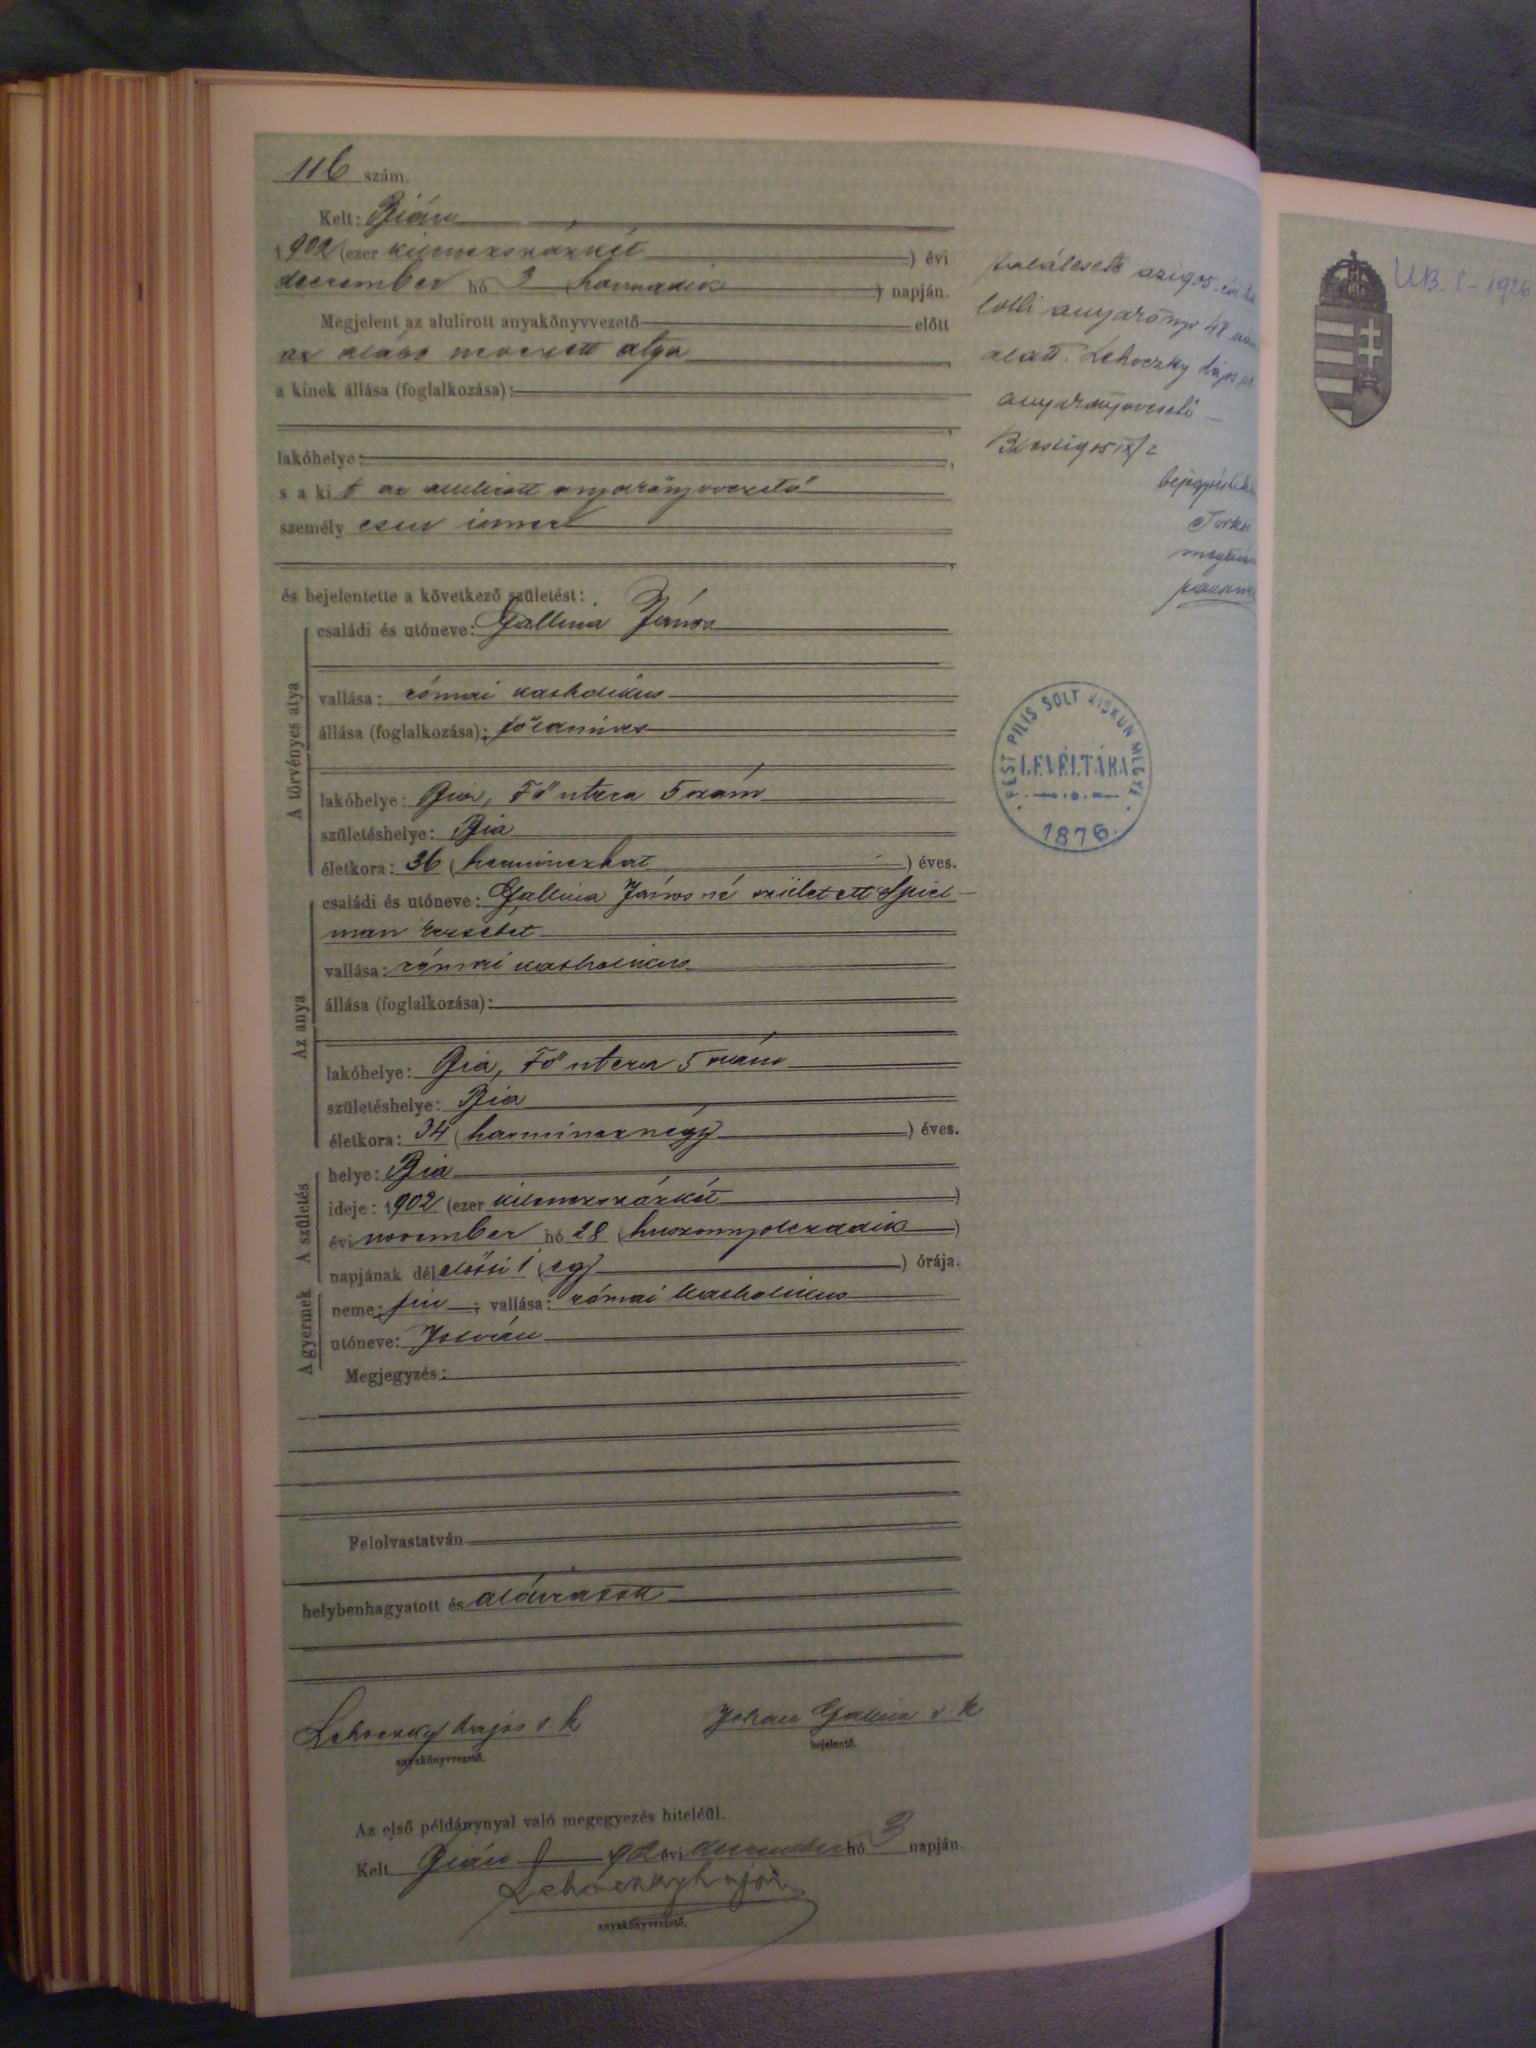 116 szám.
Kelt: Bián
1902 (ezer kilenczszázkét ) évi
deczember hó 3 (harmadik ) napján.
Megjelent az alulirott anyakönyvvezető előtt
az alább nevezett atya
a kinek állása (foglalkozása):
lakóhelye:
s a kit az alulirott anyakönyvvezető
személyesen ismer
és bejelentette a következő születést:
A törvényes atya
családi és utóneve: Gallina János
vallása: római katholikus
állása (foglalkozása): földmíves
lakóhelye: Bia, Fő utcza 5 szám
születéshelye: Bia
életkora: 36 (harminczhat ) éves.
Az anya
családi és utóneve: Gallina Jánosné született Spiel-
man Erzsébet
vallása: római katholikus
állása (foglalkozása):
lakóhelye: Bia, Fő utcza 5 szám
születéshelye: Bia
életkora: 34 (harmincznégy ) éves.
A születés
helye: Bia
ideje: 1902 (ezer kilenczszázkét )
évi november hó 28 (huszonnyolczadik )
napjának délelőtti 1 (egy ) órája.
A gyermek
neme: fiu ; vallása: római katholikus
utóneve: István
Megjegyzés:
Felolvastatván
helybenhagyatott és aláíratott
Lehoczky Lajos s. k
anyakönyvvezető.
Johan Gallina s. k
bejelentő.
Az első példánynyal való megegyezés hiteléül.
Kelt Bián 902 évi deczember hó 3 napján.
Lehoczky Lajos
anyakönyvvezető.
halálesete az 1905 évi
lotti anyakönyv 48
alatt. Lehoczky Lajos
anyakönyvvezető
Bia 1905
bejegyzés
PEST PILIS SOLT KISKUN MEGYE
LEVÉLTÁRA
1876.